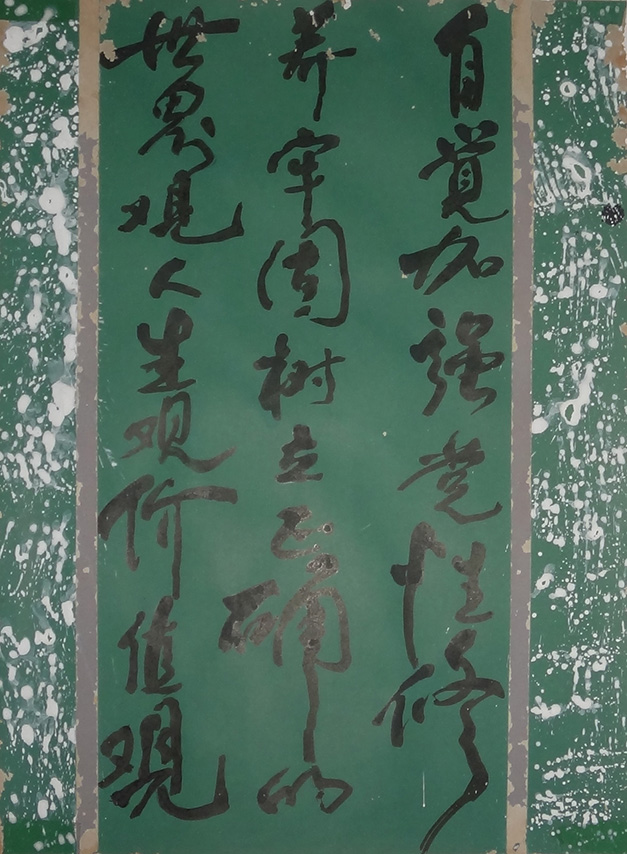 自觉加强党性修
养牢固树立正确的
世界观人生观价值观